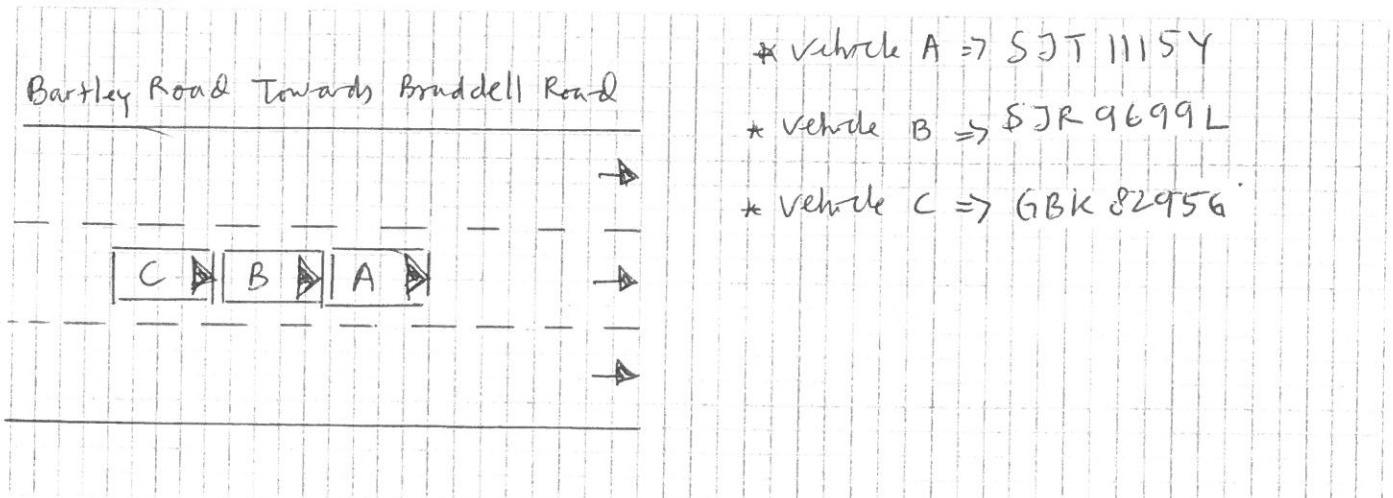 Bartley Road Towards Braddell Road
* Vehicle A => SJT 1115Y
* Vehicle B => SJR 9699L
* Vehicle C => GBK 8295G
C B A